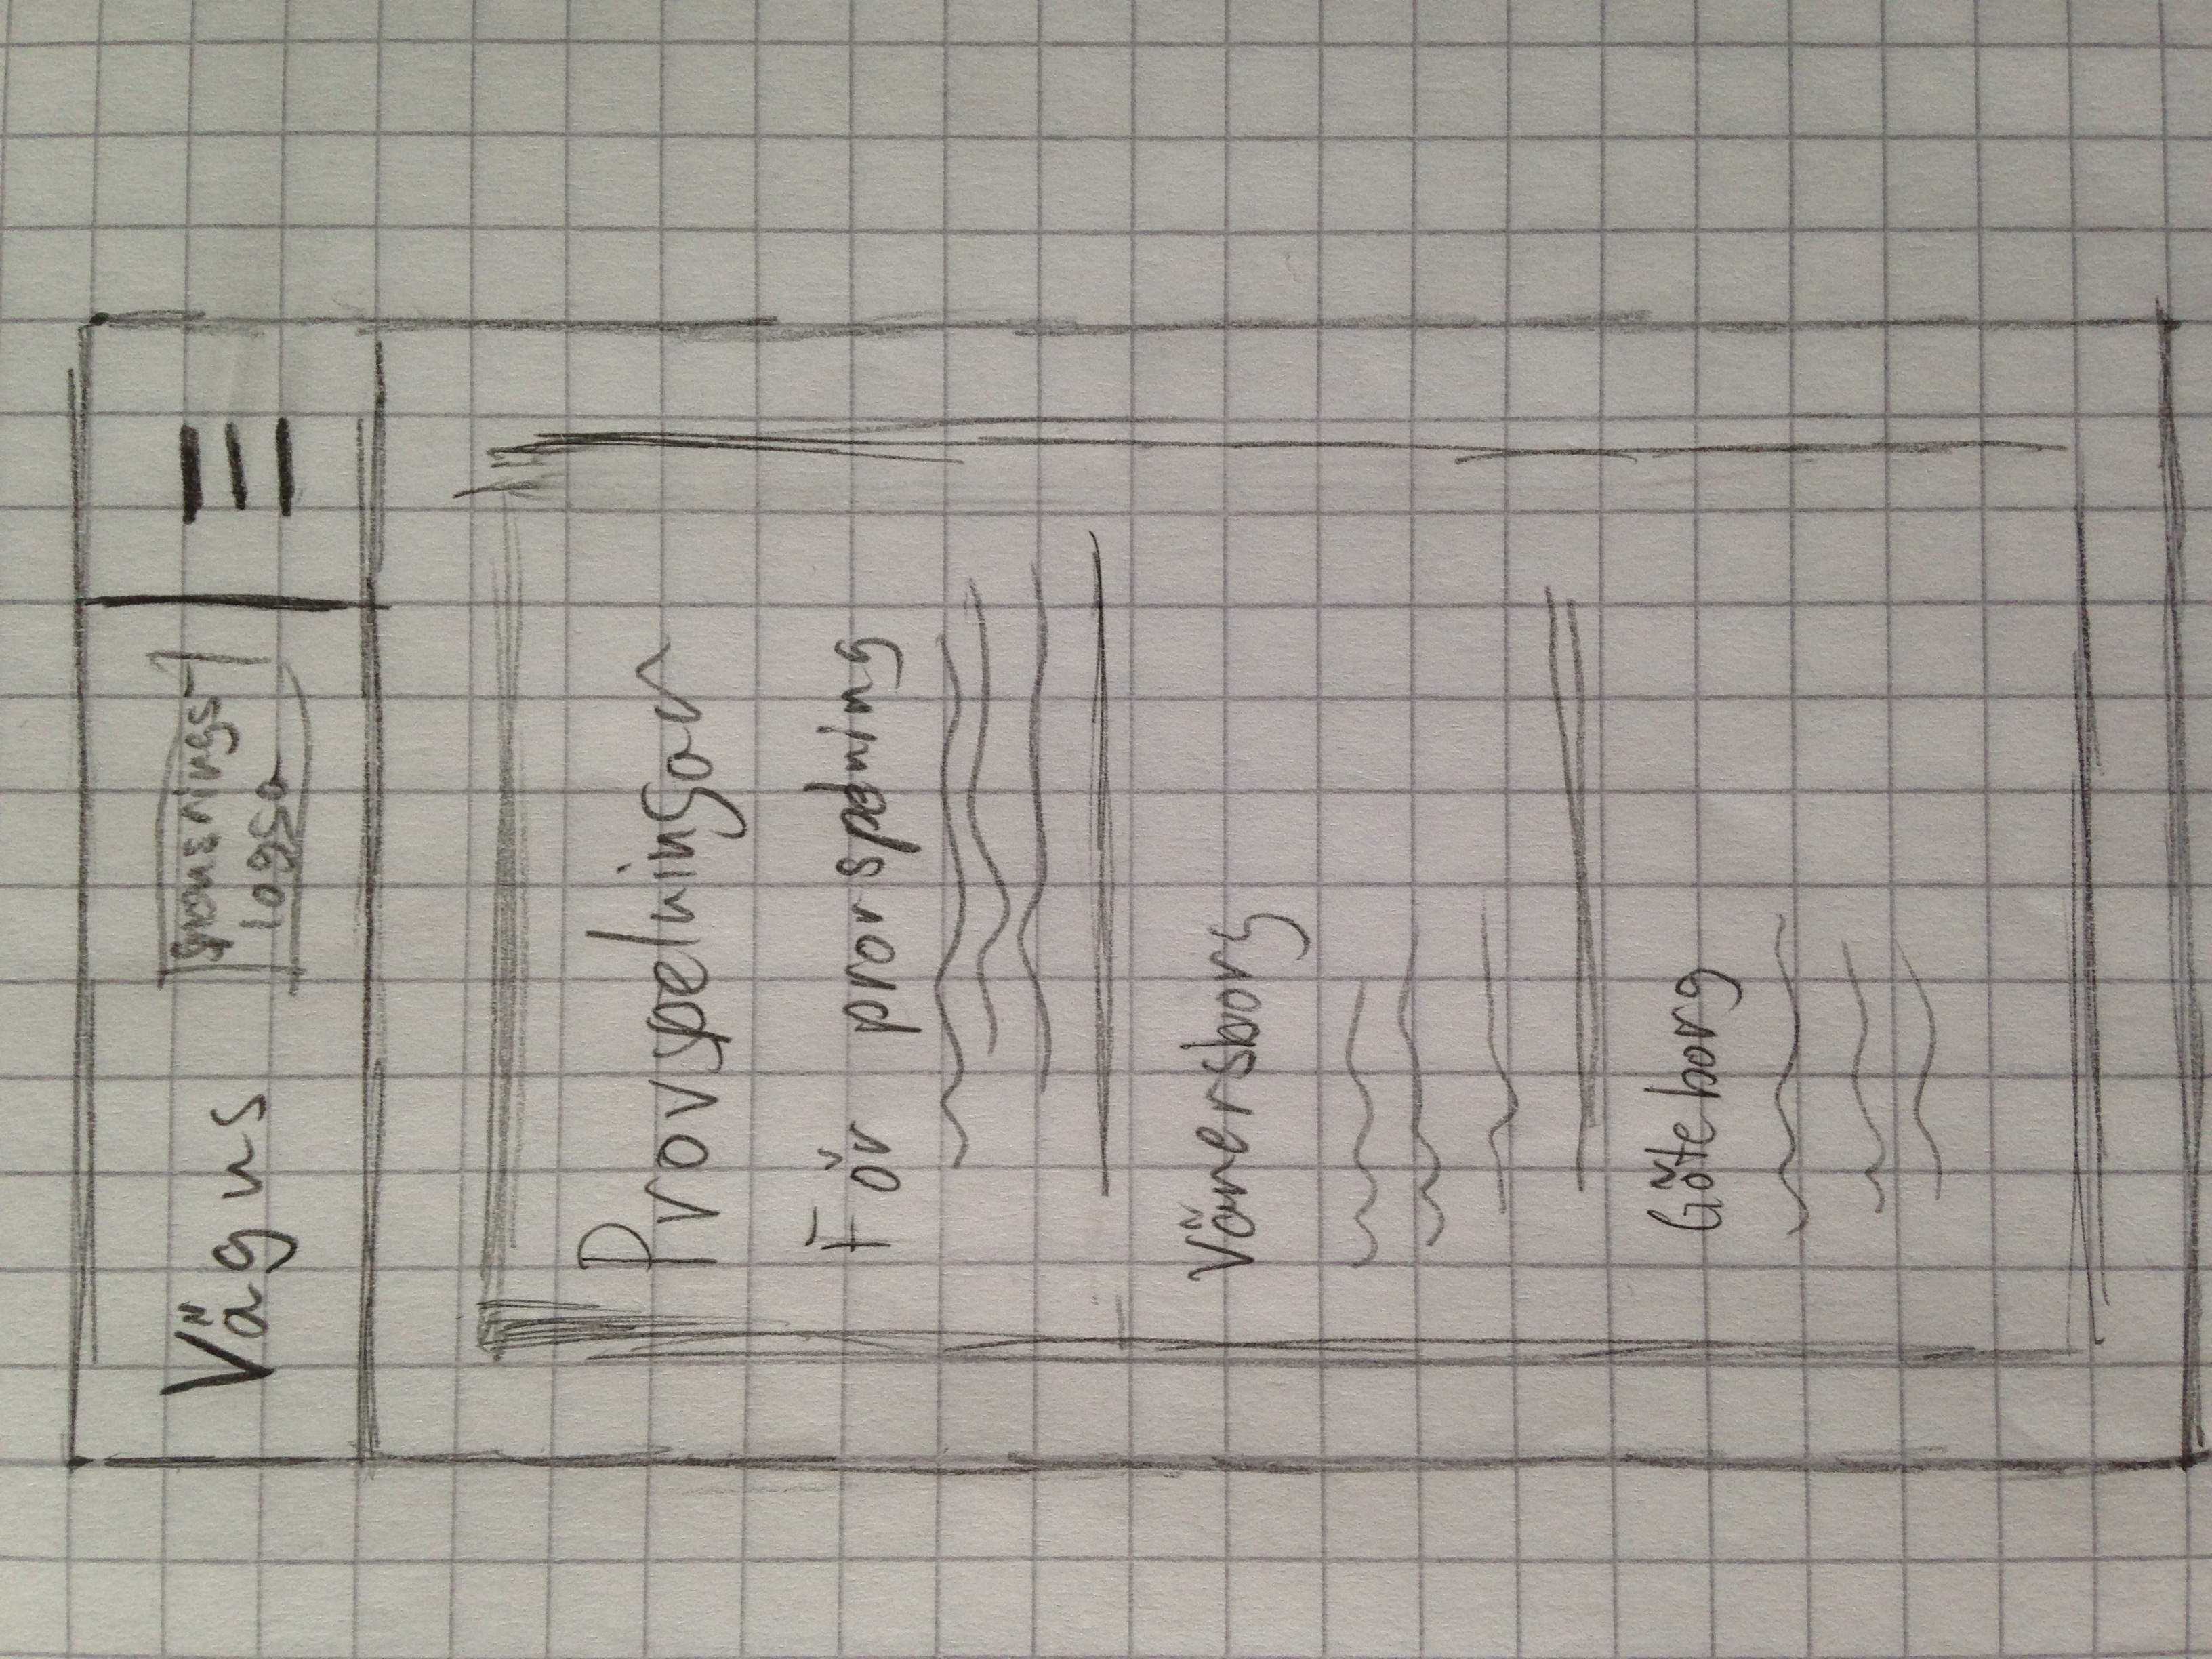 Vägus
sponsrings-
logga
Provspelningar
För provspelning
Vänersborg
Göteborg